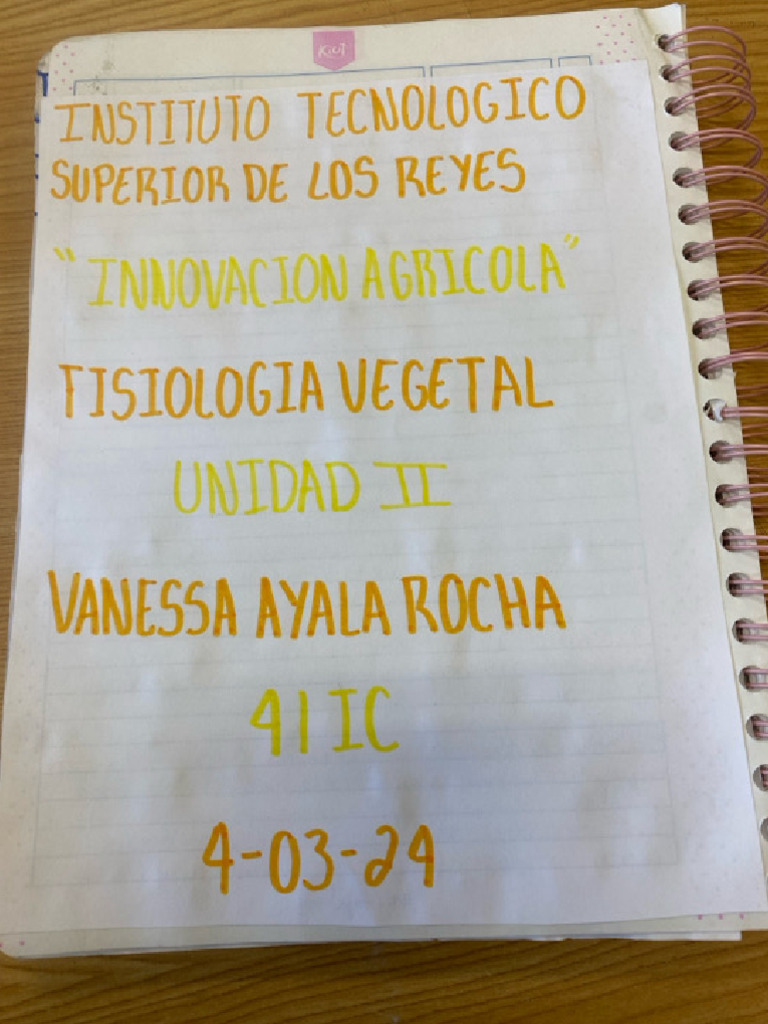 Kiut
INSTITUTO TECNOLOGICO
SUPERIOR DE LOS REYES
"INNOVACION AGRICOLA"
FISIOLOGIA VEGETAL
UNIDAD II
VANESSA AYALA ROCHA
41 IC
4-03-24